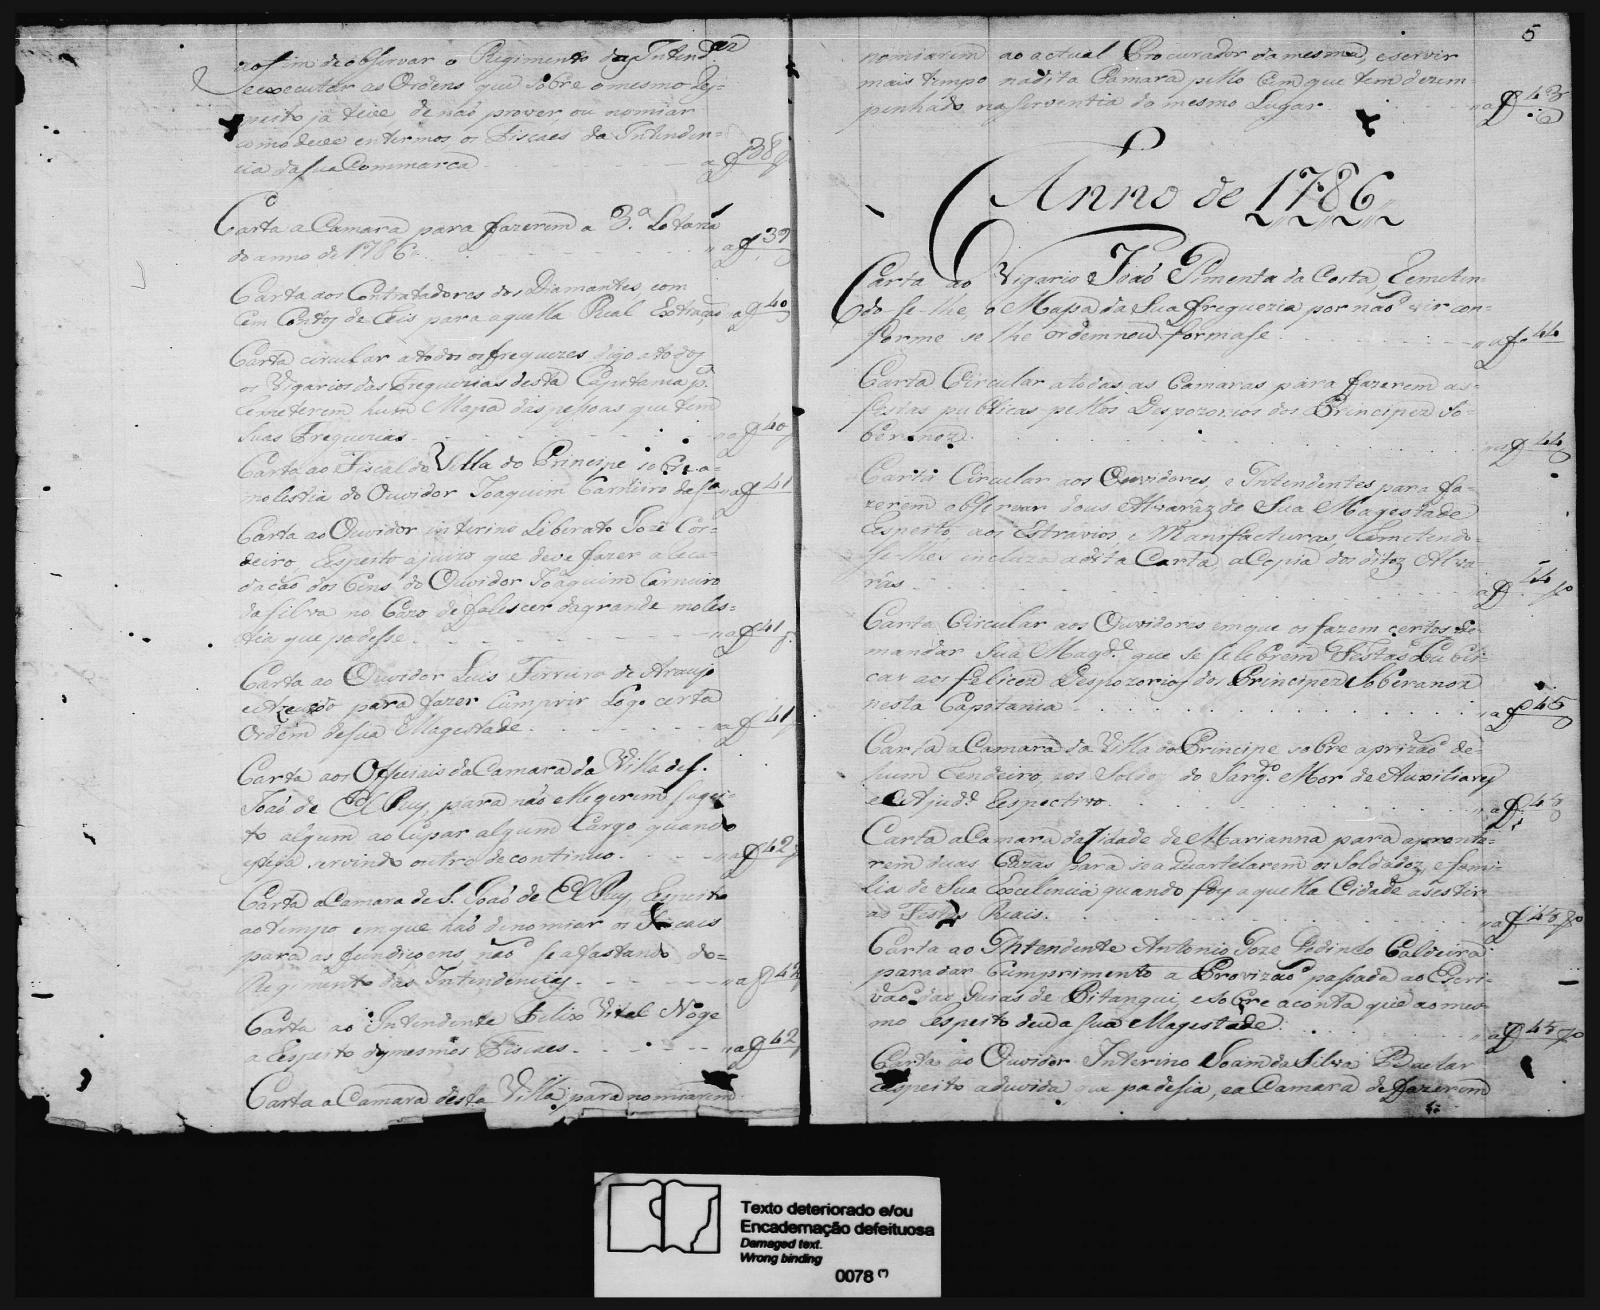 aofim de observar o Regimento da Intend.ca
e executar as Ordens que sobre o mesmo Res-
peito já teve de não prover ou nomiar
como deve entermos os Fiscaes da Intenden-
cia da sua Commarca a f 38
Carta a Camara para fazerem a 3.a Lotaria
do anno de 1786 a f 39
Carta aos Contratadores dos Diamantes com
Cem Contos de Reis para aquella Real Extração a f 40
Carta circular a todos os freguezes digo a todos
os Vigarios das Freguezias desta Capitania p.a
Remeterem hum Mapa das pessoas que tem
suas Freguezias a f 40
Carta ao Fiscal da Villa do Principe sobre a
molestia do Ouvidor Joaquim Carneiro da S.a a f 41
Carta ao Ouvidor interino Liberato Jozé Cor-
deiro, Respeito ajuizo que deve fazer a Reca-
dação dos bens do Ouvidor Joaquim Carneiro
da Silva no Cazo de falescer da grande moles-
tia que padesse a f 41
Carta ao Ouvidor Luis Ferreira de Araujo
e Azevedo para fazer Cumprir logo certa
Ordem de sua Magestade a f 41
Carta aos Officiais da Camara da Villa de S.
João de El Rey, para não elegerem sugei-
to algum ao Cupar algum Cargo quando
esteja servindo outro de continuo. a f 42
Carta a Camara de S. João de El Rey, Respeito
ao tempo em que hão de nomiar os Fiscais
para as fundiçoens, não se afastando do
Regimento das Intendencias. a f 42
Carta ao Intendente Felix Vital Noge
a Respeito dos mesmos Fiscaes. a f 42
Carta a Camara desta Villa para nomiarem
5
nomiarem ao actual Procurador da mesma, e servir
mais tempo na dita Camara pello bem que tem dezem-
penhado na serventia do mesmo Lugar a f 43
Anno de 1786
Carta ao Vigario João Pimenta da Costa, Remeten-
do-se-lhe, o Mapa da Sua freguezia por não vir con-
forme se lhe ordenou formase a f 44
Carta Circular a todas as Camaras para fazerem as
festas publicas pellos Despozorios dos Principes So-
beranos. a f 44
Carta Circular aos Ouvidores, e Intendentes para fa-
zerem observar dous Alvaráz de Sua Magestade
Respeito, aos Estravios, e Manifacturas, Remetendo-
se-lhes incluza a dita Carta, a Copia dos ditos Alva
rás a f 44
Carta Circular aos Ouvidores em que os fazem certos de
mandar Sua Mag.de que se selebrem Festas Publi-
cas aos felices Despozorios dos Principes Soberanos
nesta Capitania a f 45
Carta a Camara da Villa do Principe sobre a prizão de
hum Rendeiro, e os Soldos do Sarg.to Mor de Auxiliares
e Ajud.e Respectivo. a f 45
Carta a Camara da Cidade de Marianna para apronta-
rem duas Cazas para se aquartelarem os Soldados, e fami-
lia de Sua Excelencia quando foy aquella Cidade asestir
as Festas Reais. a f 45
Carta ao Intendente Antonio Joze Godinho Caldeira
para dar Cumprimento a Provizão passada ao Escri-
vão das Guias de Pitangui, e sobre a conta que ao mes-
mo Respeito deu a sua Magestade. a f 45
Carta ao Ouvidor Interino da Silva
Respeito a duvida, que padesia, e a Camara de fazerem
Texto deteriorado e/ou
Encadernação defeituosa
Damaged text.
Wrong binding
0078 (*)